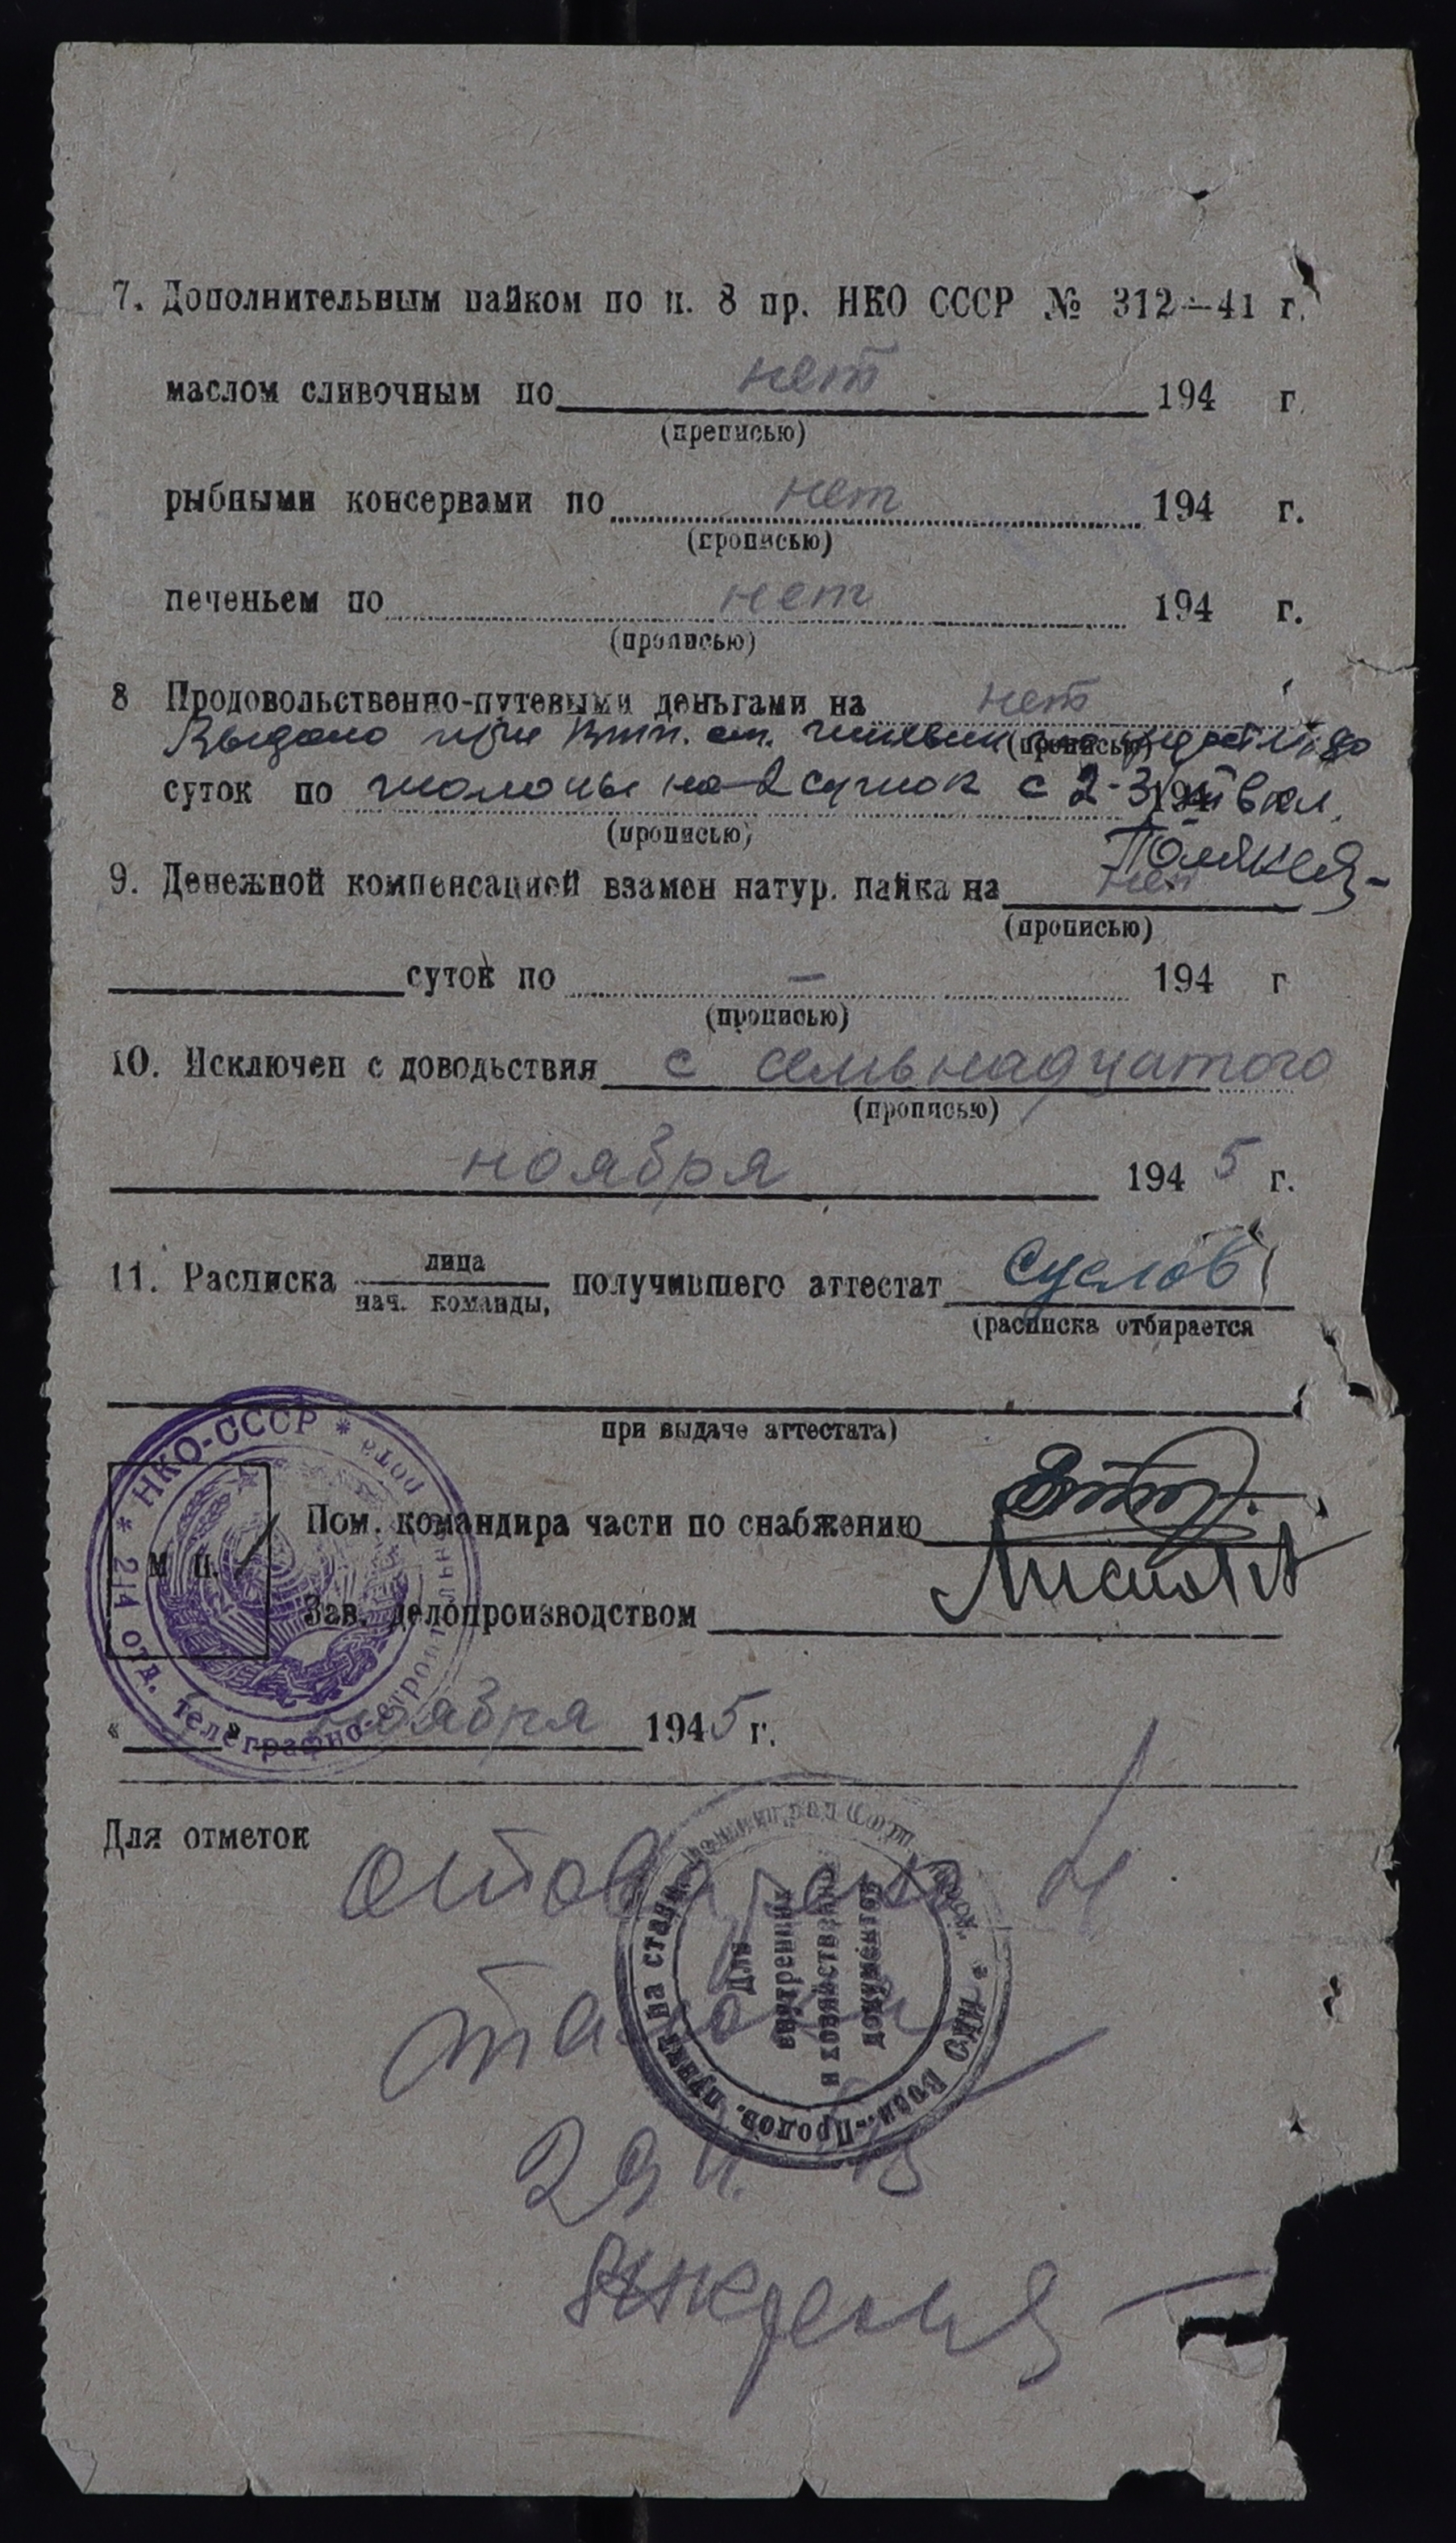 7. Дополнительным пайком по п. 8 пр. НКО СССР № 312—41 г.
маслом сливочным по нет 194 г.
(преписью)
рыбными консервами по нет 194 г.
(прописью)
печеньем по нет 194 г.
(прописью)
8 Продовольственно-путевыми деньгами на нет
(прописью)
Выдано при ст.
суток по на 2 суток с 2-3 194 вкл.
(прописью)
9. Денежной компенсацией взамен натур. пайка на нет
(прописью)
суток по — 194 г
(прописью)
10. Исключен с доводьствия с семьнадцатого
(прописью)
ноября 1945 г.
11. Расписка лица
нач. команды,
получившего аттестат Суслов
(расписка отбирается
при выдаче аттестата)
Пом. командира части по снабжению
М п.
Зав. делопроизводством
« » ноября 1945 г.
* НКО-СССР * 214 отд. телеграфно-строительная рота
Для отметок
* НКО Воен.-Продов. пункт на станц.
Для
внутренних
и хозяйственн
документов